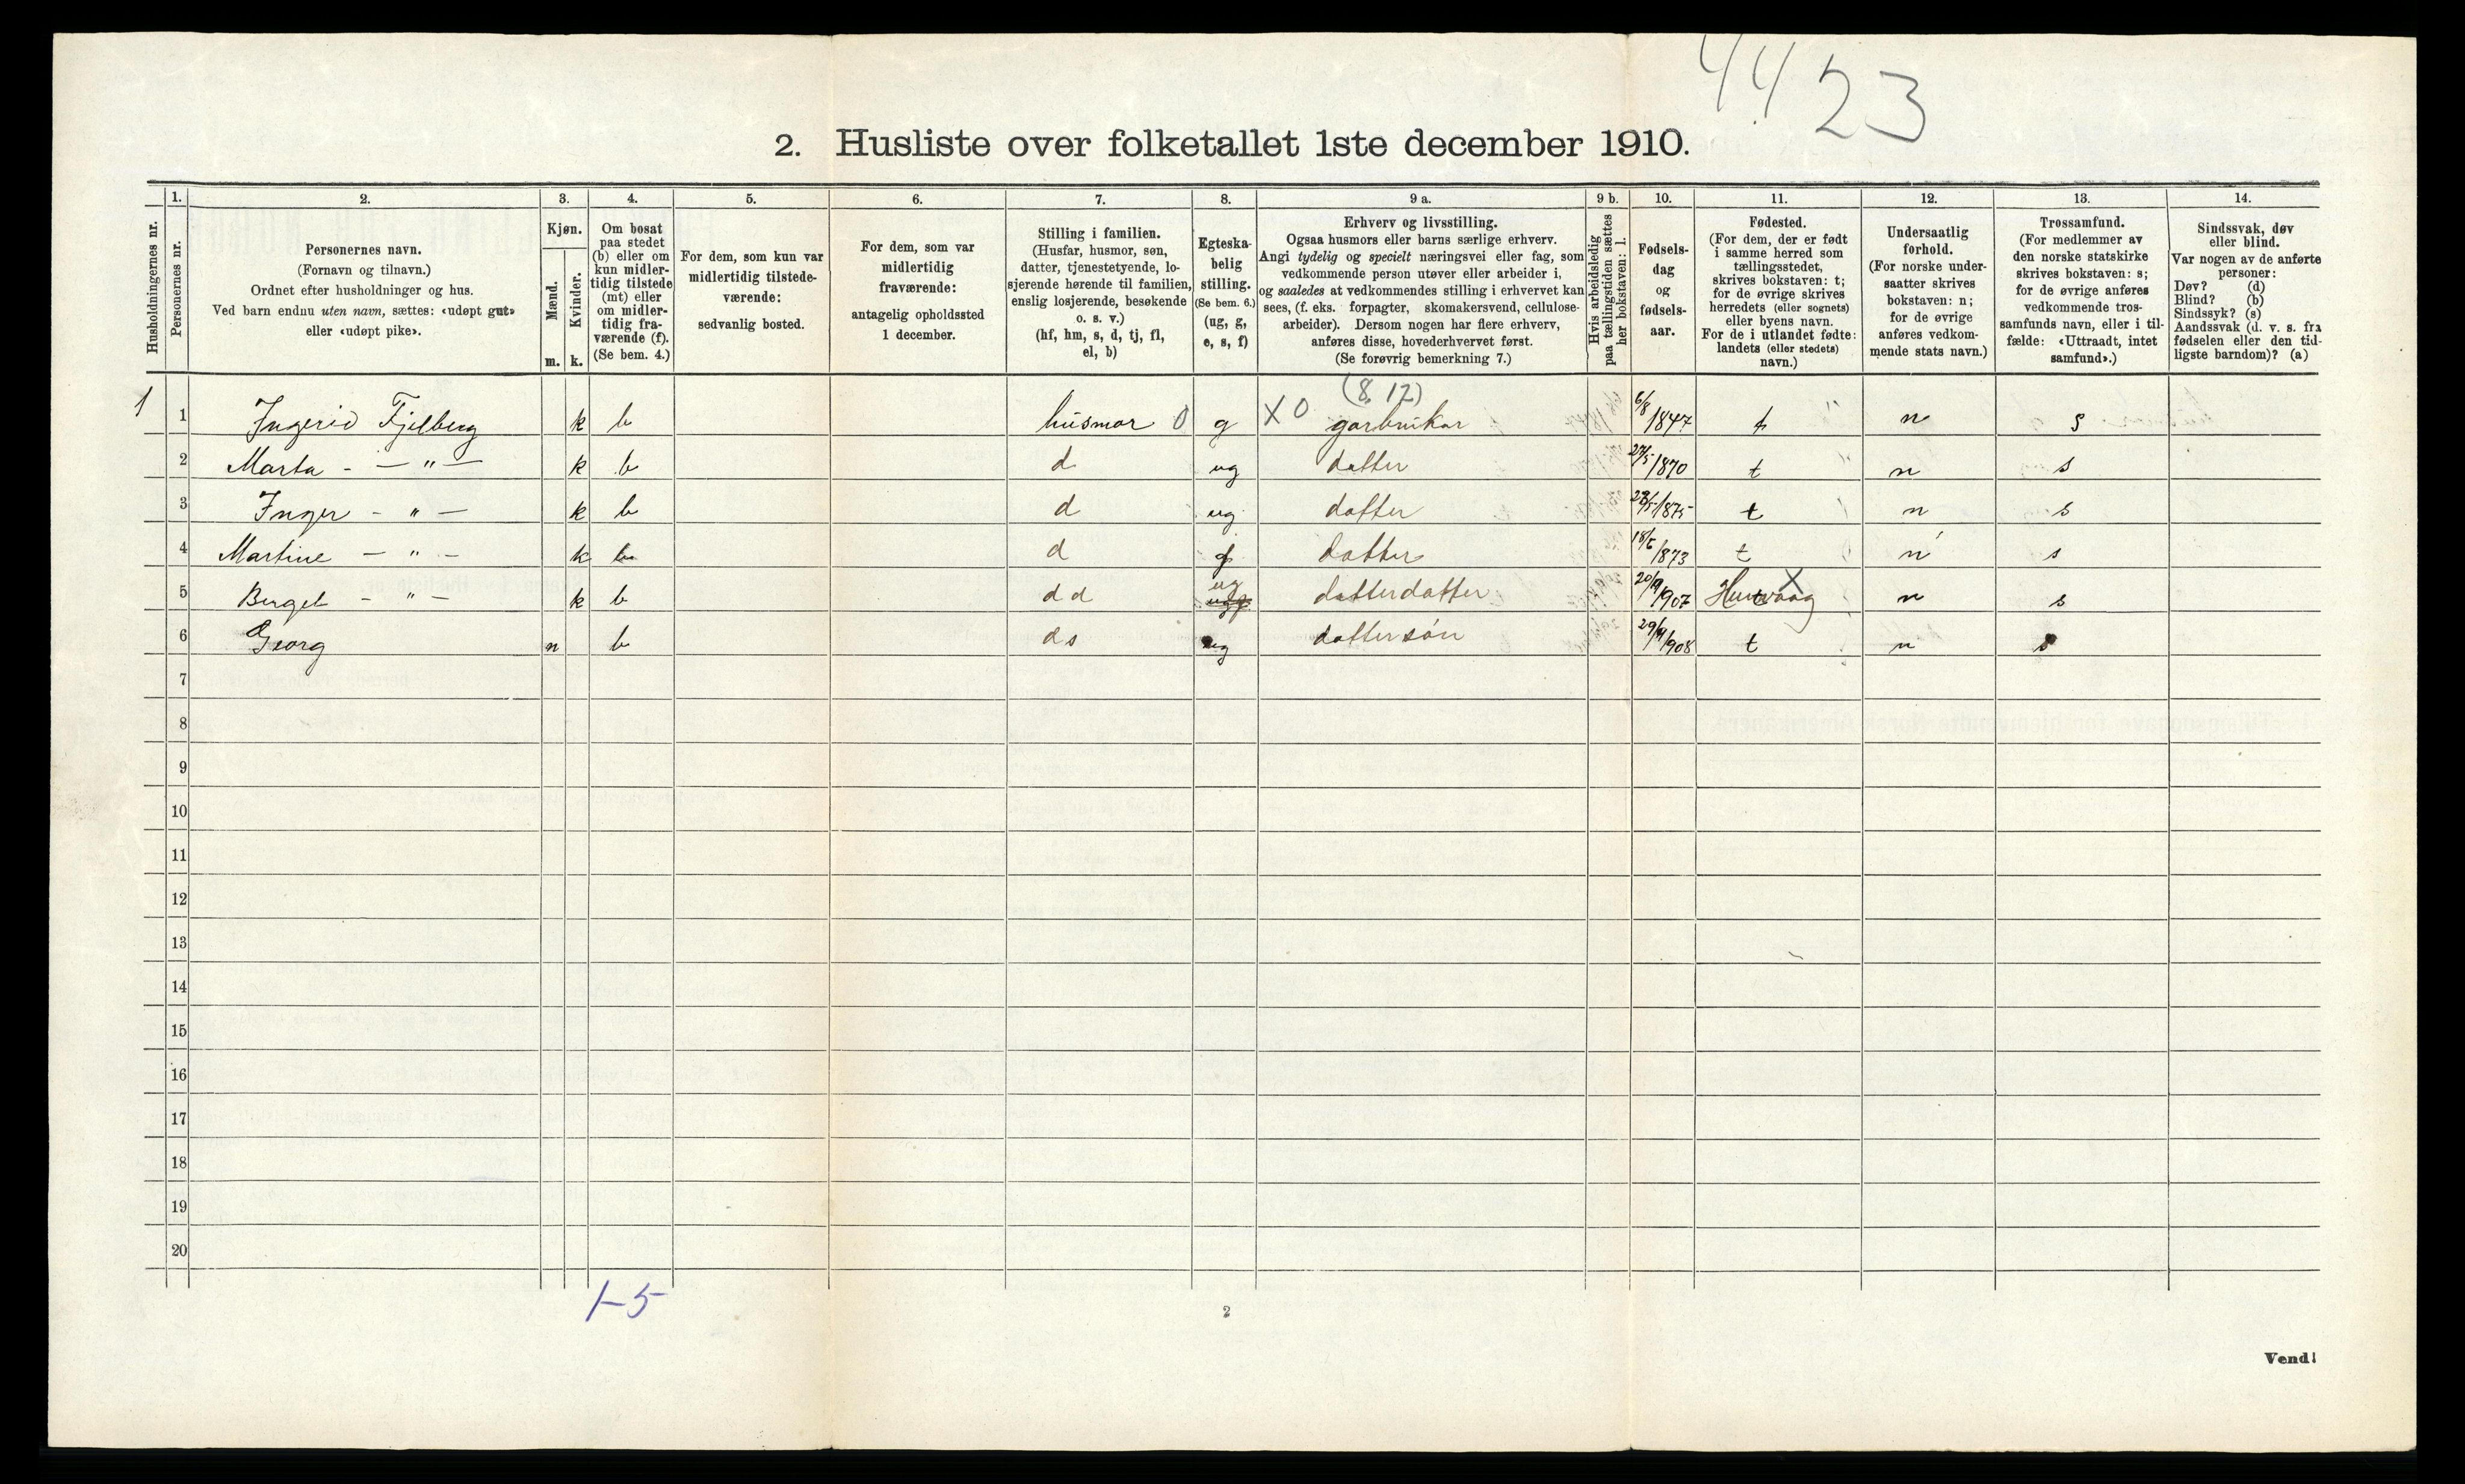 44 23
2. Husliste over folketallet 1ste december 1910.
Husholdningernes nr.
1. Personernes nr.
2. Personernes navn. (Fornavn og tilnavn.) Ordnet efter husholdninger og hus. Ved barn endnu uten navn, sættes: «udøpt gut» eller «udøpt pike».
3. Kjøn. Mænd. m. Kvinder. k.
4. Om bosat paa stedet (b) eller om kun midlertidig tilstede (mt) eller om midlertidig fraværende (f). (Se bem. 4.)
5. For dem, som kun var midlertidig tilstedeværende: sedvanlig bosted.
6. For dem, som var midlertidig fraværende: antagelig opholdssted 1 december.
7. Stilling i familien. (Husfar, husmor, søn, datter, tjenestetyende, losjerende hørende til familien, enslig losjerende, besøkende o. s. v.) (hf, hm, s, d, tj, fl, el, b)
8. Egteskabelig stilling. (Se bem. 6.) (ug, g, e, s, f)
9 a. Erhverv og livsstilling. Ogsaa husmors eller barns særlige erhverv. Angi tydelig og specielt næringsvei eller fag, som vedkommende person utøver eller arbeider i, og saaledes at vedkommendes stilling i erhvervet kan sees, (f. eks. forpagter, skomakersvend, cellulosearbeider). Dersom nogen har flere erhverv, anføres disse, hovederhvervet først. (Se forøvrig bemerkning 7.)
9 b. Hvis arbeidsledig paa tællingstiden sættes her bokstaven: l.
10. Fødselsdag og fødselsaar.
11. Fødested. (For dem, der er født i samme herred som tællingsstedet, skrives bokstaven: t; for de øvrige skrives herredets (eller sognets) eller byens navn. For de i utlandet fødte: landets (eller stedets) navn.)
12. Undersaatlig forhold. (For norske undersaatter skrives bokstaven: n; for de øvrige anføres vedkommende stats navn.)
13. Trossamfund. (For medlemmer av den norske statskirke skrives bokstaven: s; for de øvrige anføres vedkommende trossamfunds navn, eller i tilfælde: «Uttraadt, intet samfund».)
14. Sindssvak, døv eller blind. Var nogen av de anførte personer: Døv? (d) Blind? (b) Sindssyk? (s) Aandssvak (d. v. s. fra fødselen eller den tidligste barndom)? (a)
(8, 12)
1 1 Ingerid Fjelberg k b husmor 0 g X 0 garbrukar 6/8 1847 t n s
2 Marta - — " — k b d ug datter 27/5 1870 t n s
3 Inger - " — k b d ug datter 28/5 1875 t n s
4 Martine — " — k b d g datter 18/6 1873 t n s
5 Berget - " — k b dd ug datterdatter 20/9 1907 X n s
6 Georg m b ds ug dattersön 29/9 1908 t n s
7
8
9
10
11
12
13
14
15
16
17
18
19
20
1-5
2
Vend!